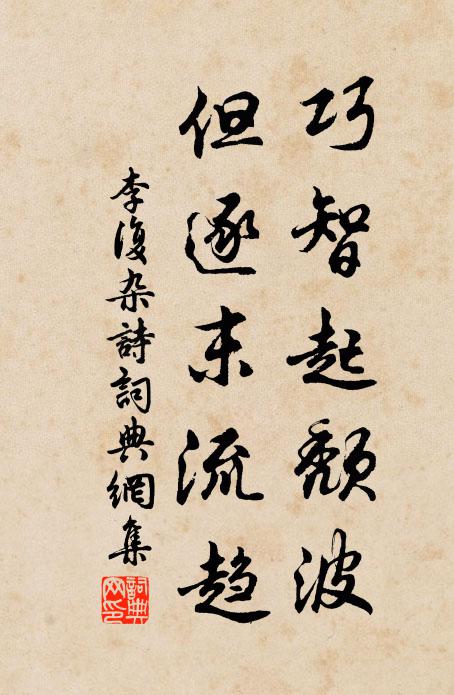 巧智起頽波
但逐末流趋
李復杂詩詞典網集
詞典网印